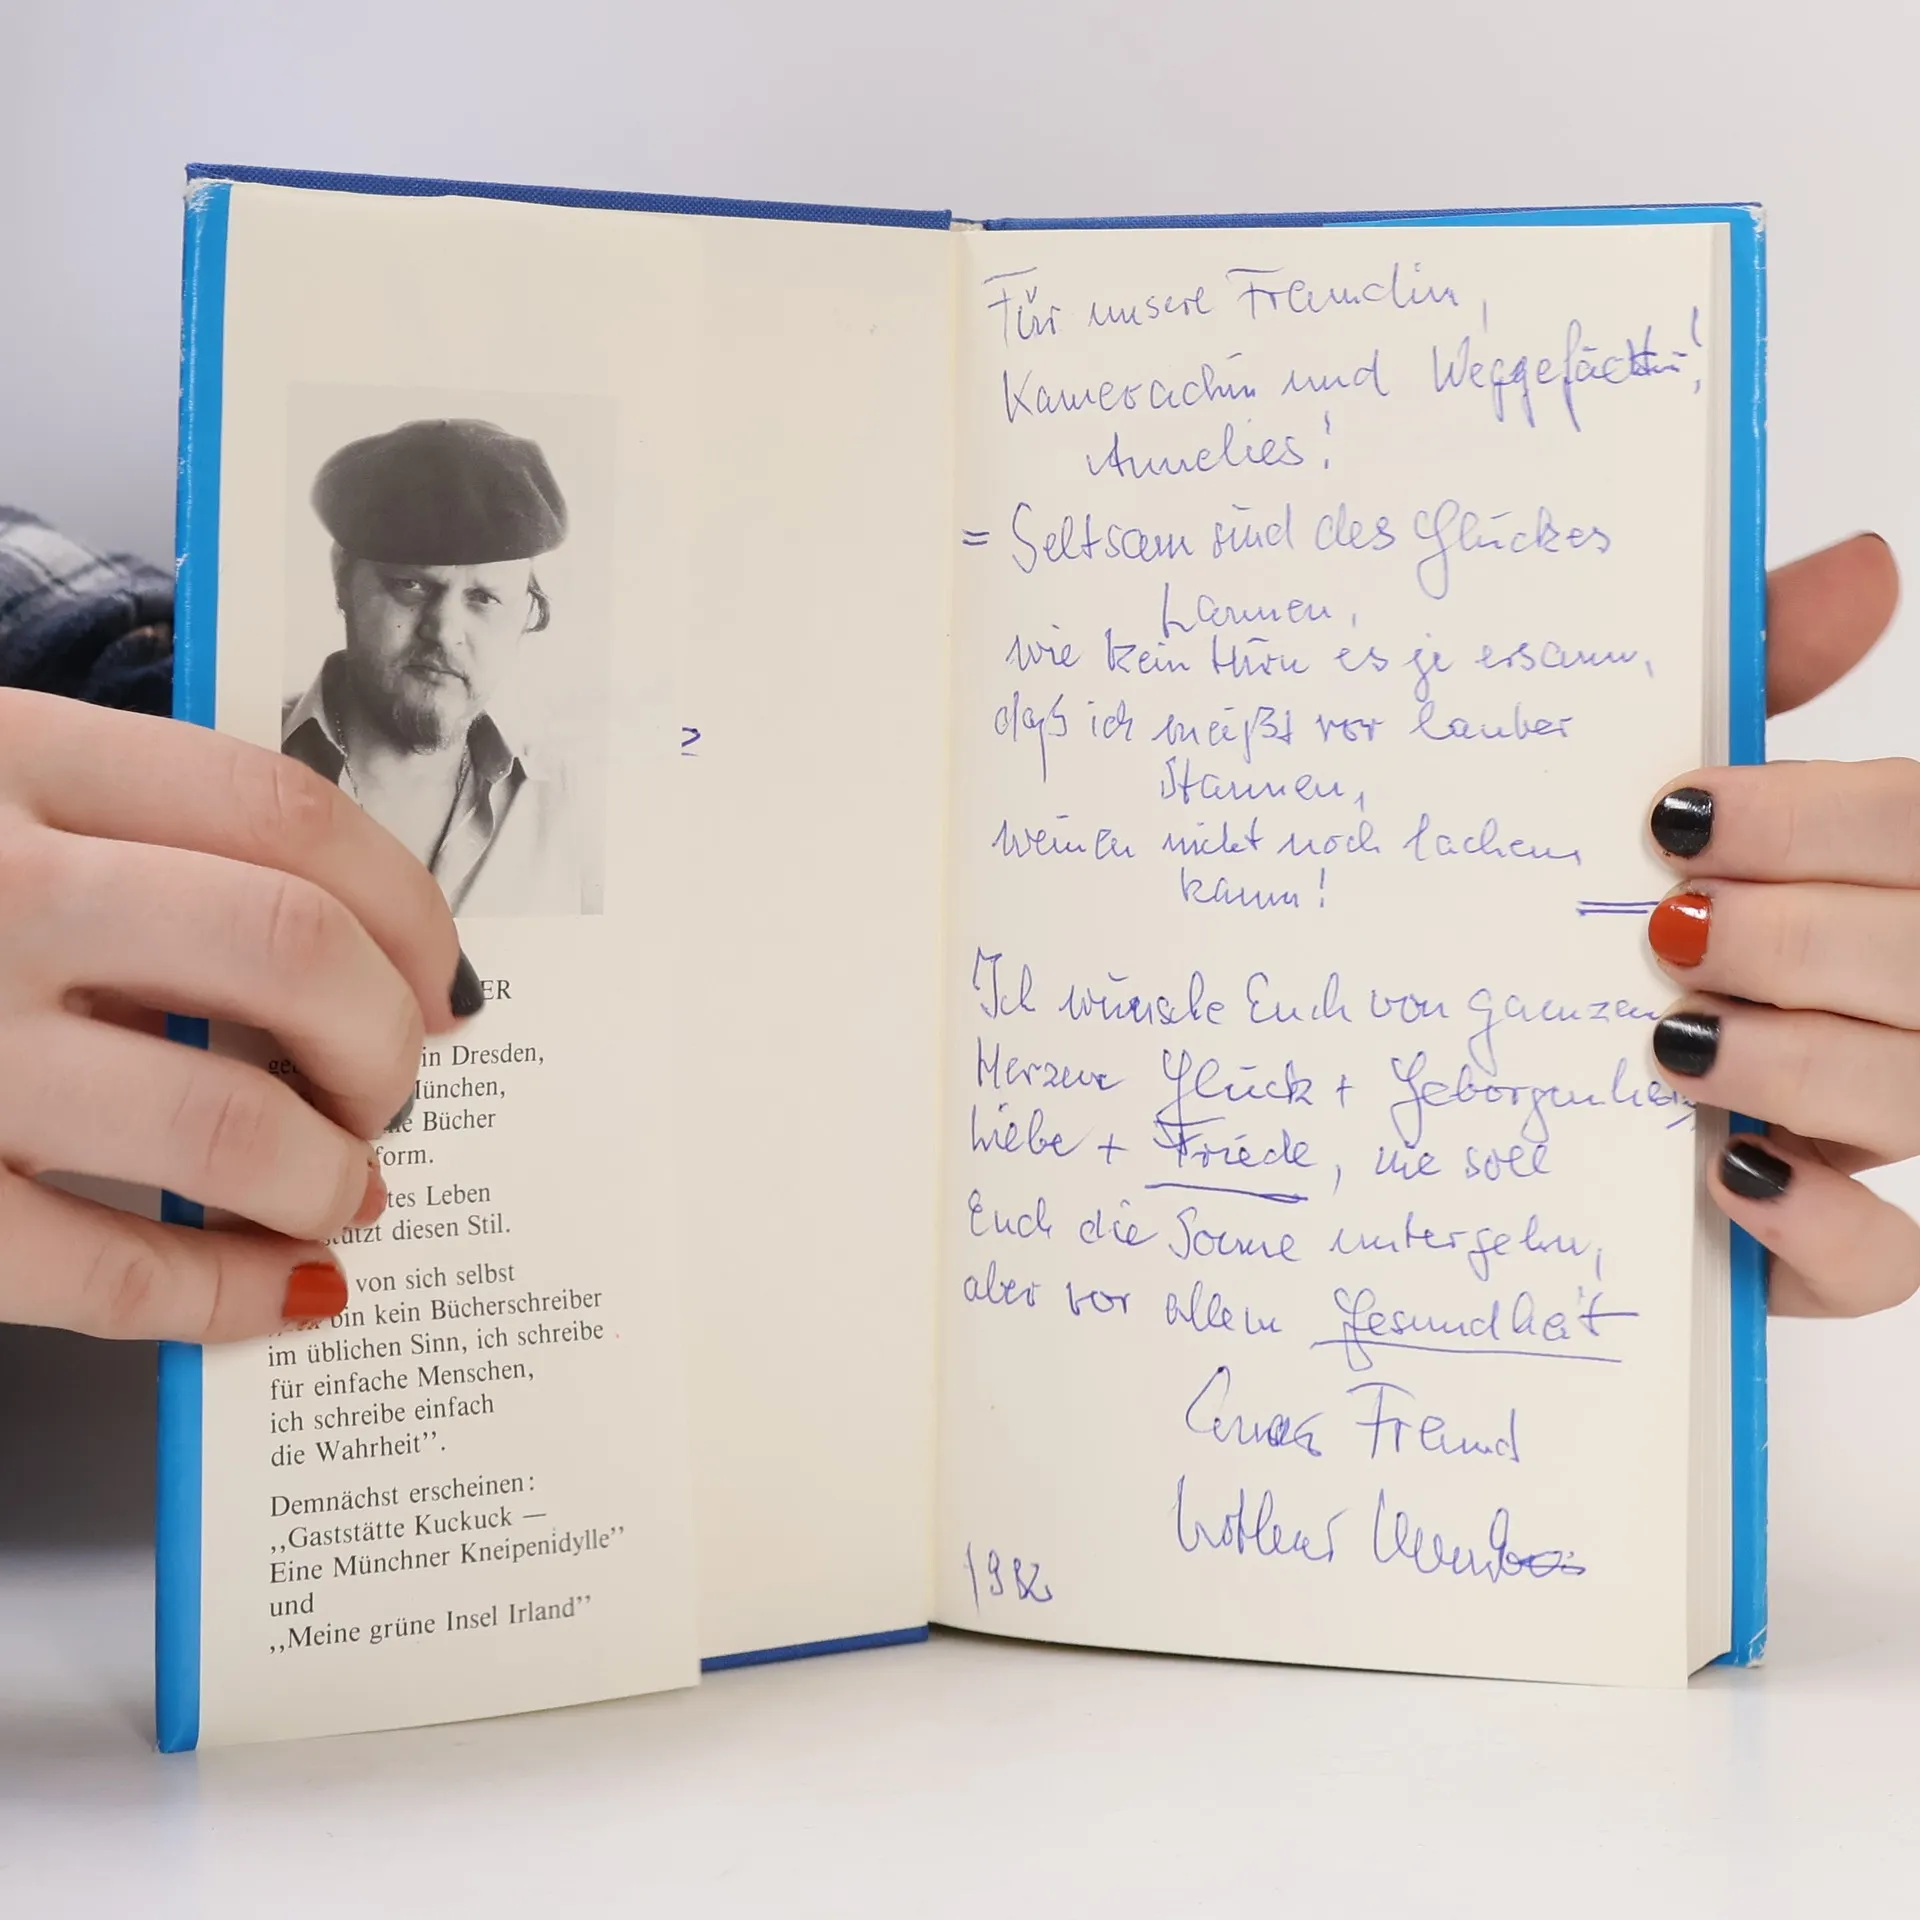 ER
in Dresden,
München,
Bücher
form.
Leben
diesen Stil.
von sich selbst
bin kein Bücherschreiber
im üblichen Sinn, ich schreibe
für einfache Menschen,
ich schreibe einfach
die Wahrheit”.
Demnächst erscheinen:
,,Gaststätte Kuckuck —
Eine Münchner Kneipenidylle”
und
,,Meine grüne Insel Irland”
Für unsere Freundin,
Kameradin und
Annelies!
= Seltsam sind des Glückes
Launen,
wie kein Hirn es je ersann,
daß ich meißt vor lauter
Staunen,
weinen nicht noch lachen
kann!
Ich wünsche Euch von ganzen
Herzen Glück + Geborgenheit
Liebe + Friede, nie soll
Euch die Sonne untergehn,
aber vor allem Gesundheit
Euer Freund
Lothar
1982